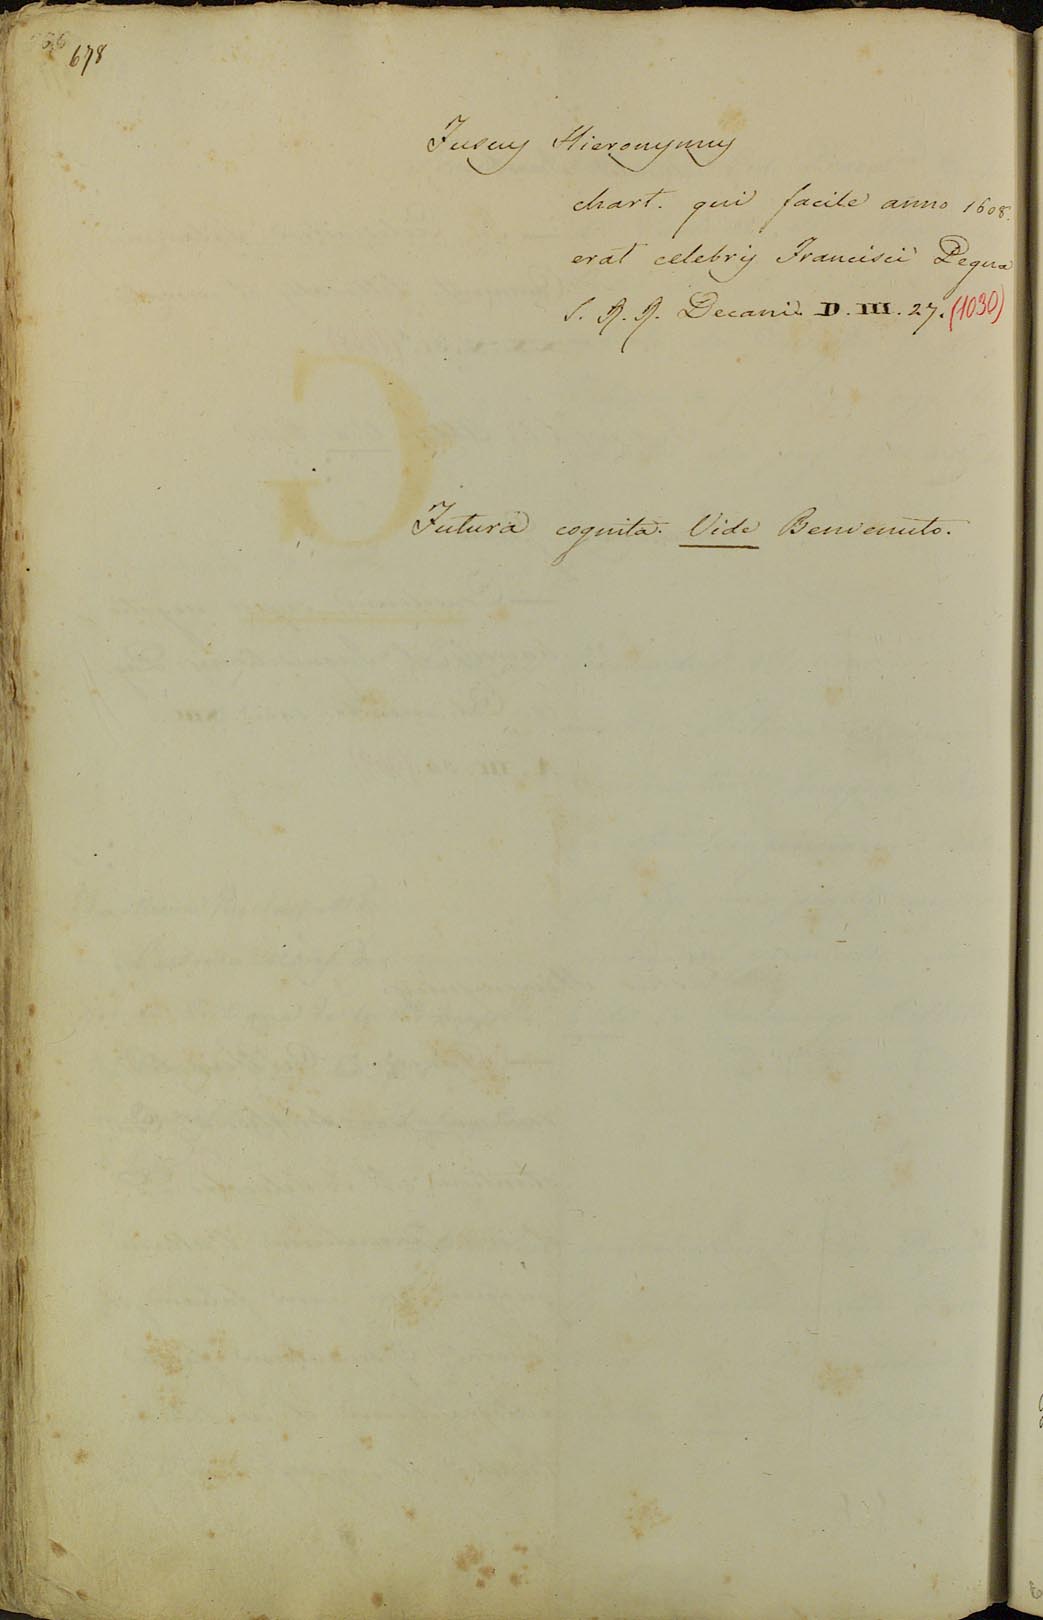 678
Fuscus Hieronymus
chart. qui facile anno 1608.
erat celebris Francisci Pegna
S. R. R. Decani. D. III. 27. (1030)
Futura cognita. Vide Benvenuto.